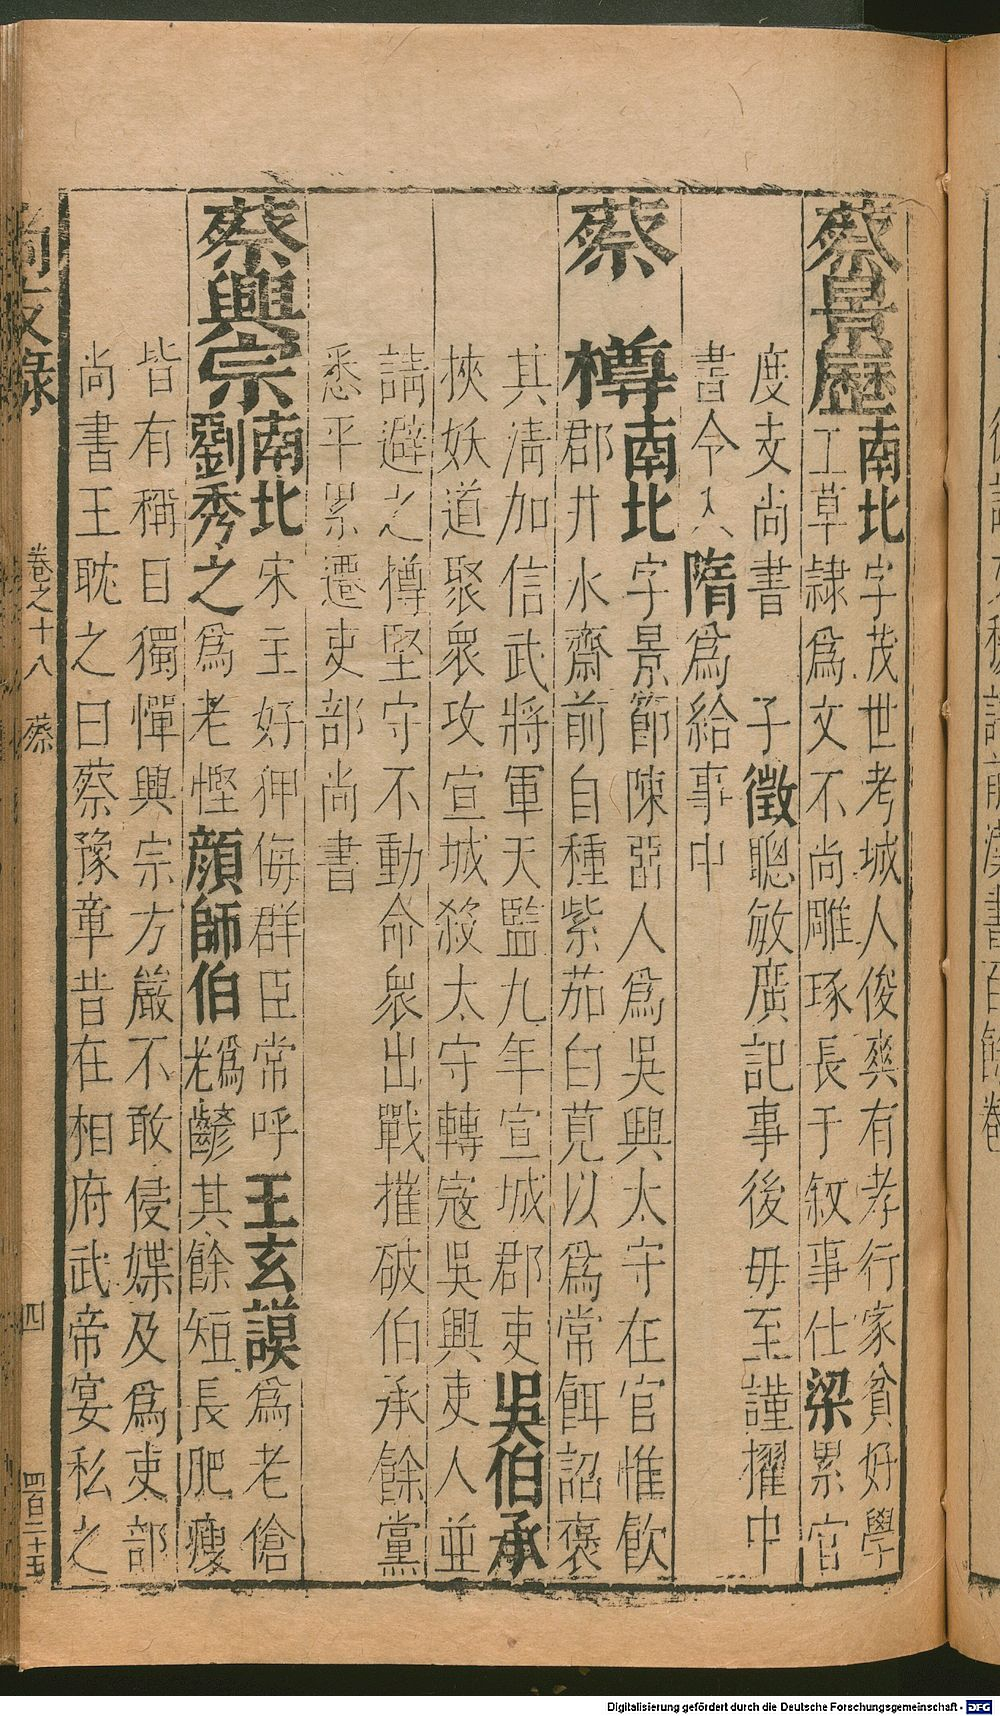 蔡景歷南北字茂世考城人俊爽有孝行家貧好學
工草隷爲文不尚雕琢長于叙事仕梁累官
度支尚書 子徵聰敏廣記事後毋至謹擢中
書令入隋爲給事中
蔡 樽南北字景節陳亞人爲吳興太守在官惟飲
郡井水齋前自種紫茄白莧以爲常餌詔褒
其淸加信武將軍天監九年宣城郡吏吳伯承
挾妖道聚衆攻宣城殺太守轉寇吳興吏人並
請避之樽堅守不動命衆出戰摧破伯承餘黨
悉平累遷吏部尚書
蔡興宗南北宋主好狎侮群臣常呼王玄謨爲老傖
劉秀之爲老慳顔師伯爲老齴其餘短長肥瘦
皆有稱目獨憚興宗方嚴不敢侵媟及爲吏部
尚書王耽之曰蔡豫章昔在相府武帝宴私之
卷之十八 蔡 四 四百二十五
Digitalisierung gefördert durch die Deutsche Forschungsgemeinschaft - DFG